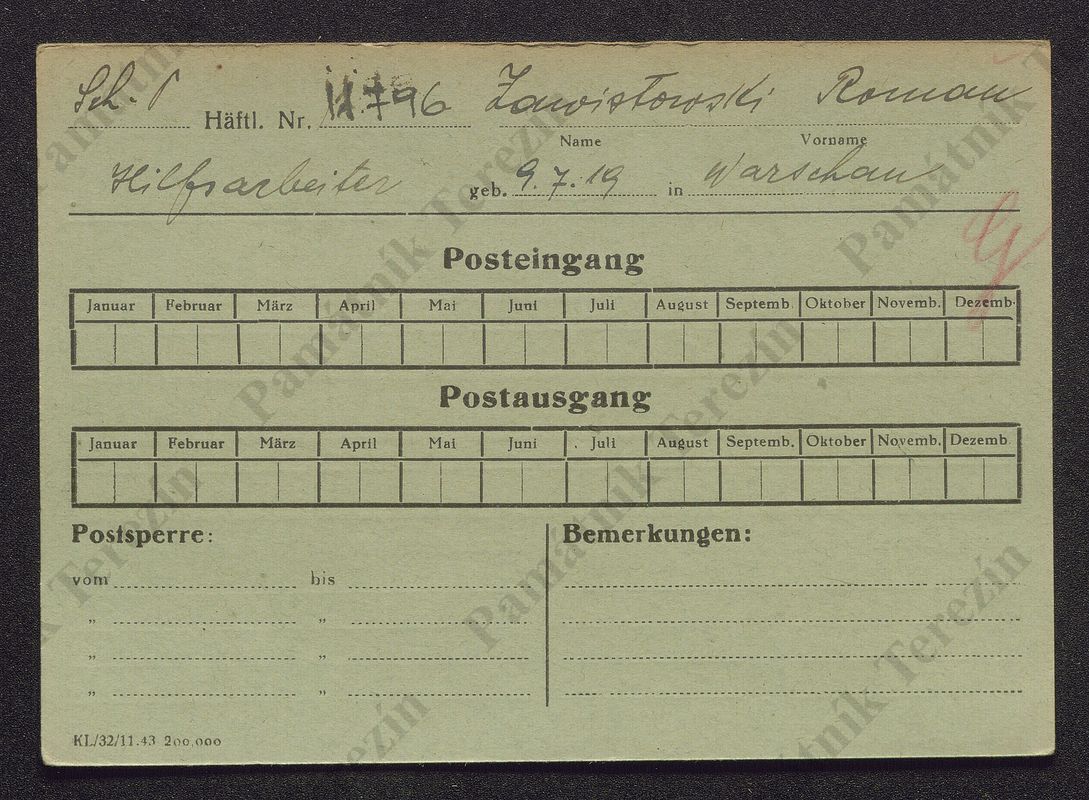 Sch. P Häftl. Nr. 11796 Zawistowski Roman
Name Vorname
Hilfsarbeiter geb. 9.7.19 in Warschau
Posteingang
Januar Februar März April Mai Juni Juli August Septemb. Oktober Novemb. Dezemb.
Postausgang
Januar Februar März April Mai Juni Juli August Septemb. Oktober Novemb. Dezemb.
Postsperre: Bemerkungen:
vom bis
„ „
„ „
„ „
KL/32/11.43 200,000
Památník Terezín